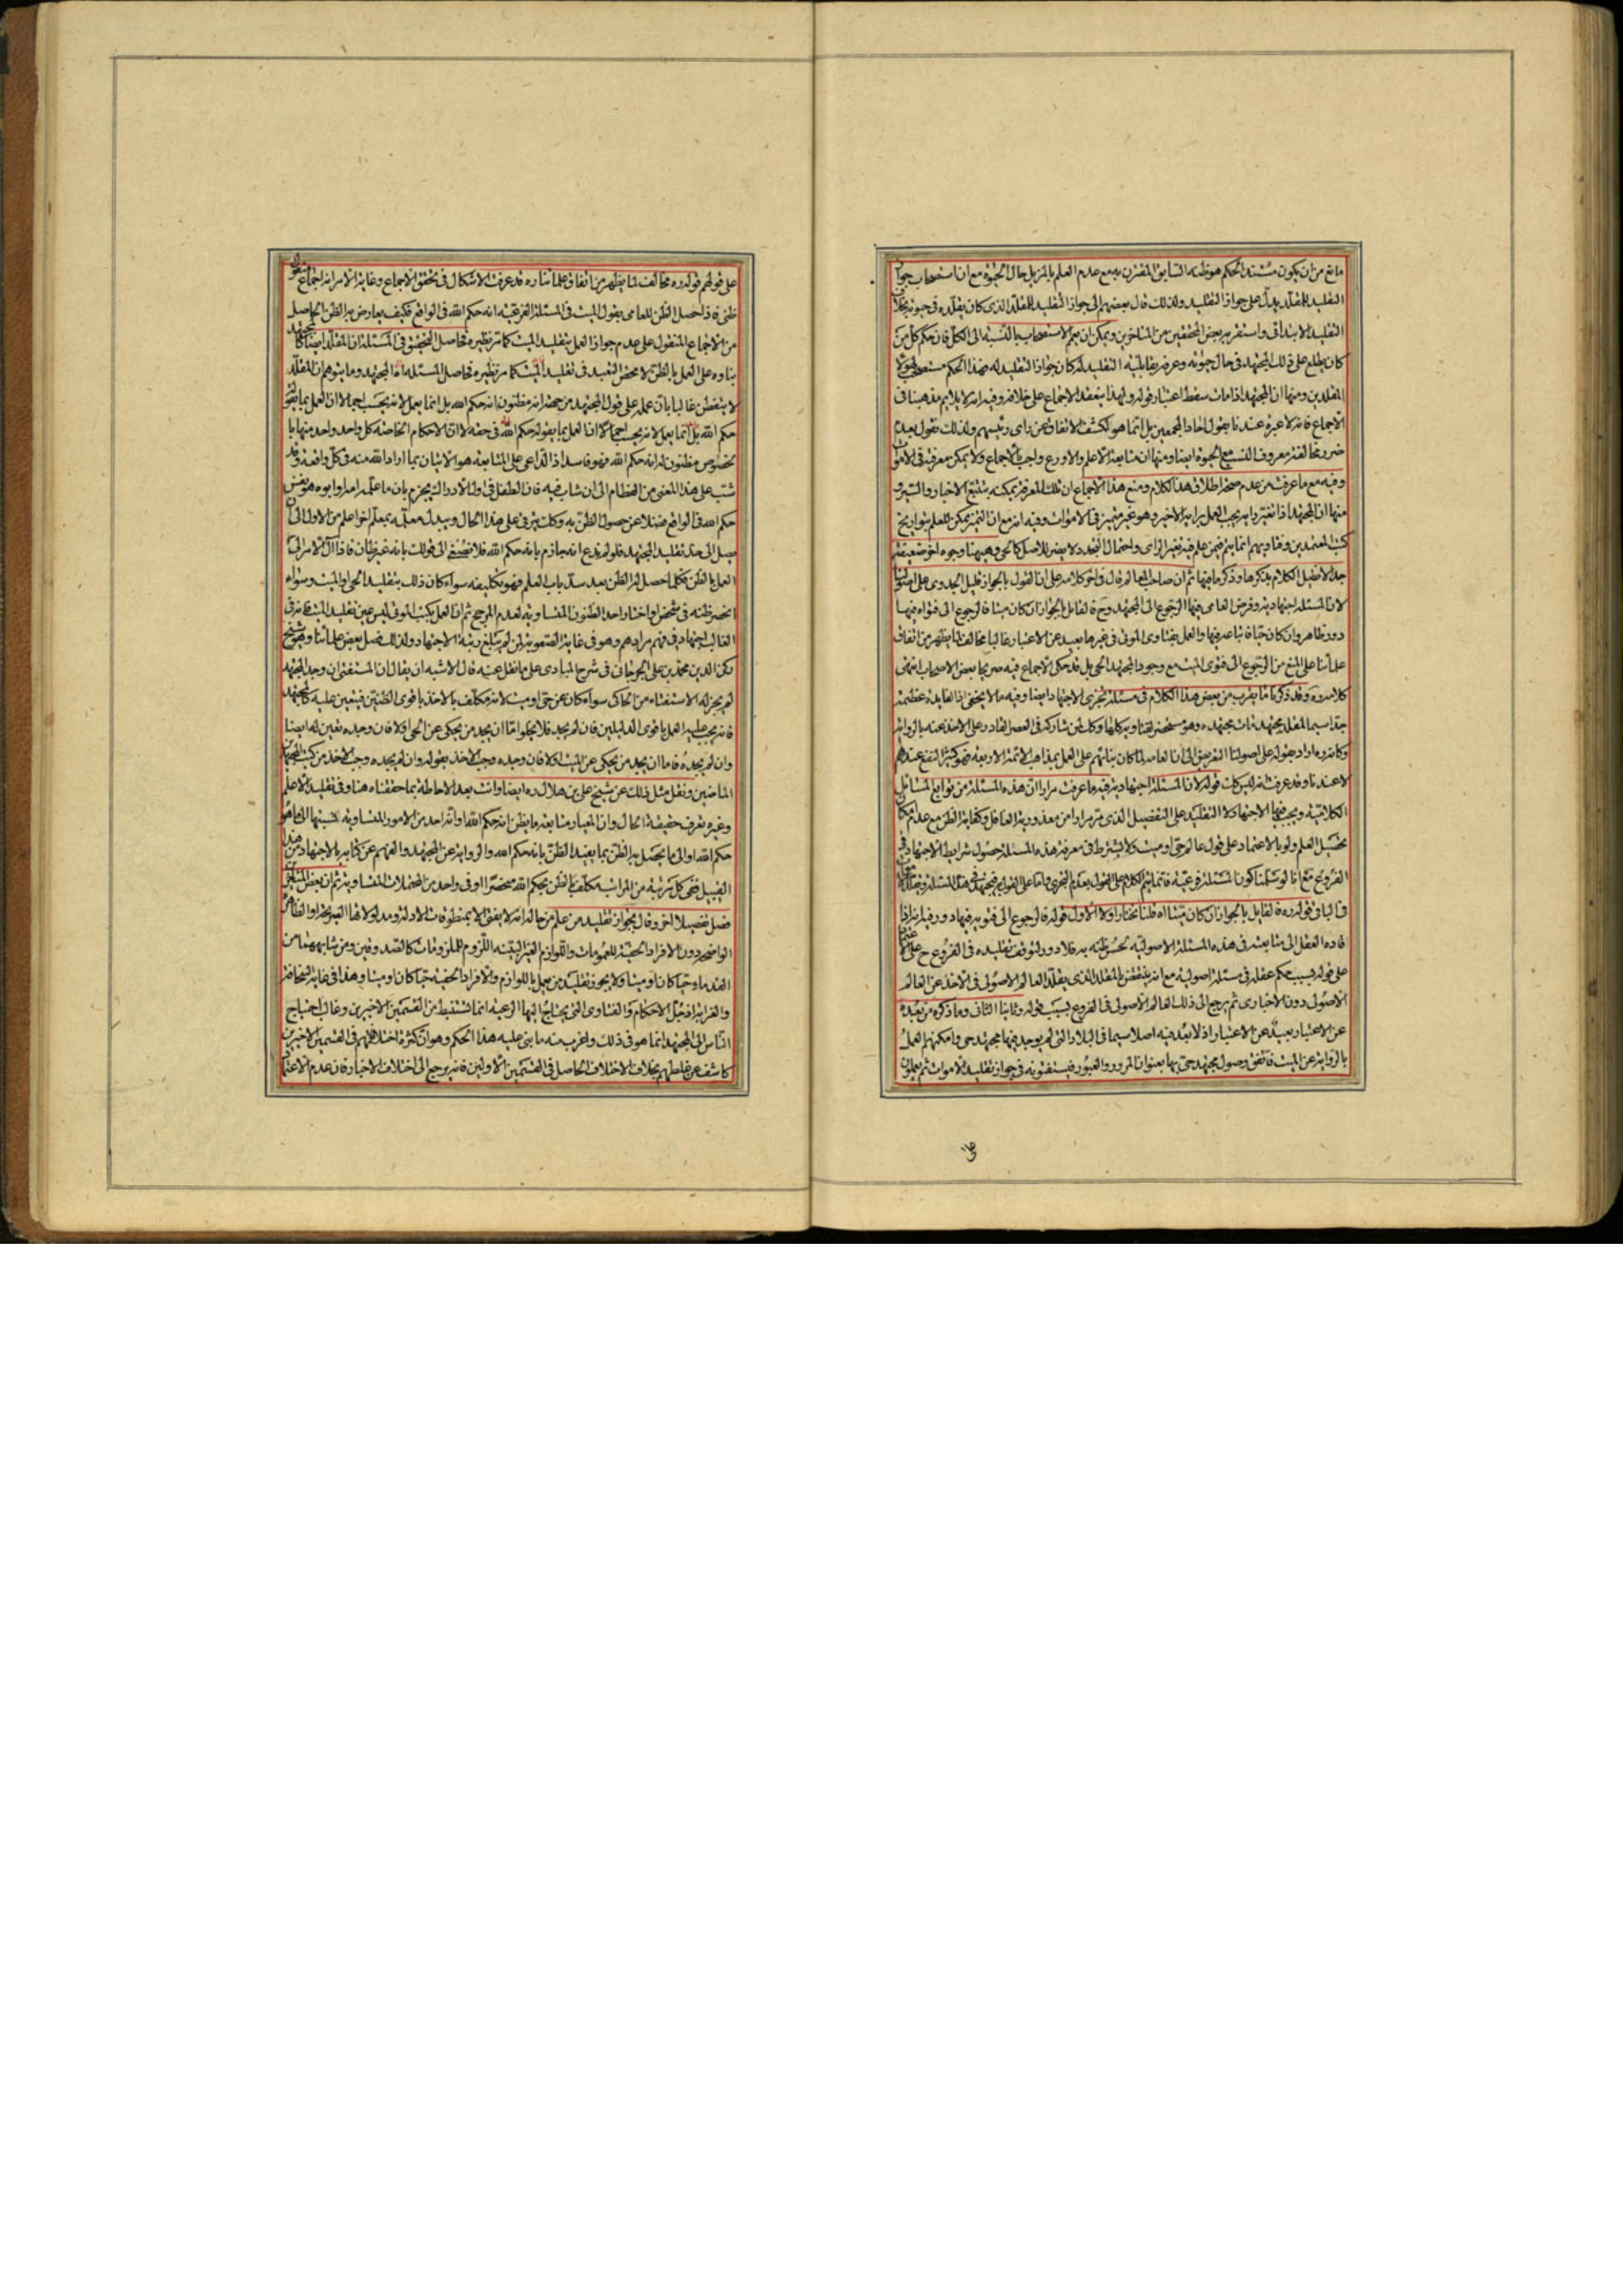 مانع من ان يكون مستند الحكم هو ظنه السابق المقترن بعدم العلم بالمزيل حال الحيوة مع ان استصحاب جواز
التقليد للمقلد يدل على جواز التقليد ولذلك قال بعضهم الى جواز التقليد للمقلد الذى كان يقلده فى حيوته
التقليد الابتدائى واستقر به بعض المحققين من المتاخرين ويمكن ان يعم الاستصحاب بالنسبة الى الكل فان حكم كل من
كان يطلع على ذلك المجتهد فى حال حيوته وعرض بقابلية التقليد له كان جواز التقليد له فهذا الحكم مستصحب
المقلدين ومنها ان المجتهد اذا مات سقط اعتبار قوله ولهذا ينعقد الاجماع على خلافه وفيه انه لا يلايم مذهبنا فى
الاجماع فانه لا عبرة عندنا بقول احاد المجمعين بل انما هو لكشف الاتفاق عن راى رئيسهم ولذلك نقول بعدم
ضرر مخالفة معروف النسب مع الحيوة ايضا ومنها ان متابعة الاعلم والاورع واجب بالاجماع ولا يمكن معرفته فى الاموات
وفيه مع ما عرفت من عدم صحة اطلاق هذا الكلام ومنع هذا الاجماع ان تلك المعرفة يمكنه بتتبع الاخبار والسير و
منها ان المجتهد اذا تغير رايه يجب العمل برايه الاخير وهو غير متميز فى الاموات وفيه انه مع ان التميز يمكن للعلم بتواريخ
كتب المعتمدين وفتاويهم انما يتم فيمن علم فيه تغير الراى واحتمال التجدد لا يضر للاصل كالحى وههنا وجوه اخر ضعيفة
جدا لا نطيل الكلام بذكرها وذكر ما فيها ثم ان صاحب المعالم قال فى اخر كلامه على ان القول بالجواز قليل الجدوى على اصولنا
لان المسئلة اجتهادية وفرض العامى فيها الرجوع الى المجتهد وح فالقايل بالجواز ان كان ميتا فالرجوع الى فتواه فيها
دور ظاهر وان كان حيا فاتباعه فيها والعمل بفتاوى الموتى فى غيرها بعيد عن الاعتبار غالبا مخالف لما يظهر من اتفاق
علمائنا على المنع من الرجوع الى فتوى الميت مع وجود المجتهد الحى بل قد حكى الاجماع فيه صريحا بعض الاصحاب انتهى
كلامه ره وقد ذكرنا ما يقرب من بعض هذا الكلام فى مسئلة تجزى الاجتهاد ايضا وفيه ما لا يخفى اذ الفايدة عظيمة
جدا سيما لمقلد مجتهد مات مجتهده وهو مستحضر لفتاويه كلها وكل من شاركه فى العصر القادر على الاخذ عنه بالرواية
وكانه ره اراد بقوله على اصولنا التعريض الى ان العامة لما كان بنائهم على العمل بمذاهب الائمة الاربعة فهو كثير النفع عندهم
لا عندنا وقد عرفت انه ليس كك قوله لان المسئلة اجتهادية فيه ما عرفت مرارا ان هذه المسئلة من توابع المسائل
الكلامية ويجب فيها الاجتهاد لا التقليد على التفصيل الذى مر مرارا من معذورية الغافل وكفاية الظن مع عدم امكان
تحصيل العلم ولو بالاعتماد على قول عالم حى او ميت ولا يشترط فى معرفة هذه المسئلة حصول شرايط الاجتهاد فى
الفروع مع انا لو سلمنا كون المسئلة فرعية فانما يتم الكلام على القول بعدم التجزى واما على القول به فيجتهد فى هذه المسئلة ويقلد
فى الباقى فقوله ره فالقايل بالجواز ان كان ميتا اه قلنا نختار اولا الاول قوله فالرجوع الى فتويه فيها دور فيه انه اذا
افاده العقل الى متابعته فى هذه المسئلة الاصولية لحسن ظنه به فلا دور لتوقف تقليده فى الفروع ح على
على قوله بسبب حكم عقله فى مسئلة اصولية مع انه ينتقض بالمقلد الذى يقلد العالم الاصولى فى الاخذ عن العالم
الاصولى دون الاخبارى ثم يرجع الى ذلك العالم الاصولى فى الفروع بسبب قوله وثانيا الثانى وما ذكره من بعده
عن الاعتبار بعيد عن الاعتبار اذ لا بعد فيه اصلا سيما فى البلاد التى لم يوجد فيها مجتهد حى وامكنهم العمل
بالرواية عن الميت فاتفق وصول مجتهد حى بها بعنوان المرور والعبور فيستفتونه فى جواز تقليد الاموات ثم يعملون
على قولهم قوله ره مخالف لما يظهر من اتفاق علمائنا ره قد عرفت الاشكال فى تحقق الاجماع وغاية الامر انه اجماع منقول
ظنى فاذا حصل الظن للعامى بقول الميت فى المسئلة الفرعية انه حكم الله فى الواقع فكيف يعارض به الظن الحاصل
من الاجماع المنقول على عدم جواز العمل بتقليد الميت كما مر نظيره فحاصل التحقيق فى المسئلة ان المقلد ايضا كالمجتهد
بناؤه على العمل بالظن لا محض التعبد فى تقليد الميت كما مر نظيره فحاصل المسئلة اما المجتهد وما يتوهم ان المقلد
لا يتفطن غالبا بان عمله على قول المجتهد من جهة انه مظنون انه حكم الله بل انما يعمل لانه يحسب اجمالا ان العمل بما يقوله
حكم الله بل انما يعمل لانه يحسب اجمالا ان العمل بما يقوله حكم الله فى حقه لا ان الاحكام الخاصة كل واحد واحد منها با
لخصوص مظنون له انه حكم الله فهو فاسد اذ الداعى على المتابعة هو الاتيان بما اراد الله منه فى كل واقعة وقد
شبت على هذا المعنى من الفطام الى ان شاب فيه فان الطفل فى اول الادراك يجزم بان ما علمه امه او ابوه هو نفس
حكم الله فى الواقع فضلا عن حصول الظن به وكك يترقى على هذا الحال ويبدل معلمه بمعلم اخر اعلم من الاول الى ان
يصل الى حد تقليد المجتهد فلو لم ندع انه جازم بانه حكم الله فلا نصغى الى قولك بانه غير ظان فاذا آل الامر الى
العمل بالظن فكلما حصل له الظن بعد سد باب العلم فهو تكليفه سواء كان ذلك بتقليد الحى او الميت وسواء
انحصر ظنه فى شخص او اختار واحد الظنون المتساوية لعدم المرجح ثم ان العمل بكتب الموتى ليس عين تقليد الميت فانه فى
الغالب اجتهاد فى فهم مرادهم وهو فى غاية الصعوبة لمن لم يبلغ رتبة الاجتهاد ولذلك فصل بعض علمائنا وهو شيخ
ركن الدين محمد بن على الجرجانى فى شرح المبادى على ما نقل عنه قال الاشبه ان يقال ان المستفتى ان وجد المجتهد
لم يجز له الاستفتاء من الحاكى سواء كان عن حى او ميت لانه مكلف بالاخذ باقوى الظنين فيتعين عليه كالمجتهد
فانه يجب عليه العمل باقوى الدليلين فان لم يجد فلا يخلوا اما ان يجد من يحكى عن الحى اولا فان وجده تعين له ايضا
وان لم يجده فاما ان يجد من يحكى عن الميت اولا فان وجده وجب الاخذ بقوله وان لم يجده وجب الاخذ من كتب المجتهدين
الماضين ونقل مثل ذلك عن شيخ على بن هلال ره ايضا وانت بعد الاحاطة بما حققناه هنا وفى تقليد الاعلم
وغيره تعرف حقيقة الحال وان المعيار متابعة ما يظن انه حكم الله او انه احد من الامور المتساوية نسبتها الى ما هو
حكم الله اولى ما يحصل به الظن بما يفيد الظن بانه حكم الله والرواية عن المجتهد والفهم عن كتابه بالاجتهاد من هذا
القبيل ففى كل مرتبة من المراتب مكلف بالظن بحكم الله منحصرا او فى واحد من المحتملات المتساوية ثم ان بعض المتاخرين
فصل تفصيلا اخر وقال بجواز تقليد من علم من حاله انه لا يفتى الا بمنطوقات الادلة ومدلولاتها الصريحة او الظاهرة
الواضحة دون الافراد الخفية للعمومات واللوازم الغير البينة اللزوم للملزومات كالصدوقين ومن شابههما من
القدماء حيا كان او ميتا ولا يجوز تقليد من يعمل باللوازم والافراد الخفية حيا كان او ميتا وهذا فى غاية السخافة
والغرابة اذ جل الاحكام والفتاوى التى يحتاج اليها الرعية انما تستنبط من القسمين الاخيرين وغالب احتياج
الناس الى المجتهد انما هو فى ذلك واغرب منه ما بنى عليه هذا الحكم وهو ان كثرة اختلافهم فى القسمين الاخيرين
كاشف عن غلطهم بخلاف الاختلاف الحاصل فى القسمين الاولين فانه يرجع الى اختلاف الاخبار فان عدم الاعتماد